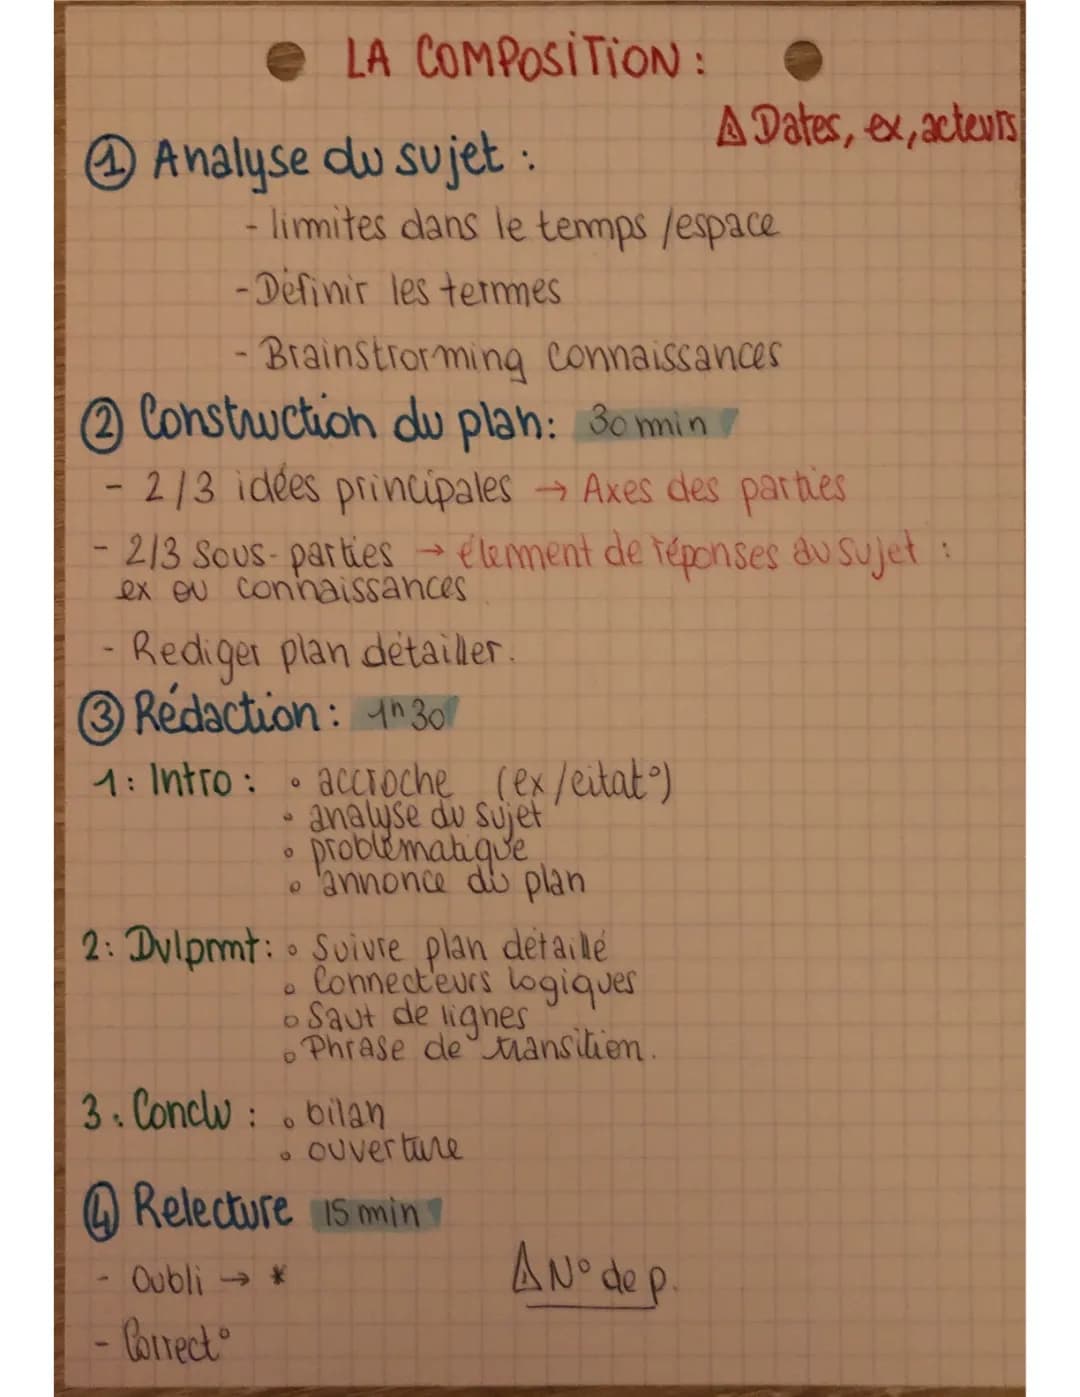 LA COMPOSITION :
⚠ Dates, ex, acteurs
① Analyse du sujet :
- limites dans le temps /espace
- Définir les termes
- Brainstrorming connaissances
② Construction du plan: 30 min
- 2/3 idées principales → Axes des parties
- 2/3 Sous-parties → élement de réponses au sujet :
ex ou connaissances
- Rediger plan détailler.
③ Rédaction : 1h30
1: Intro : ∘ accroche (ex/citat°)
∘ analyse du sujet
∘ problématique
∘ annonce du plan
2: Dvlpmt: ∘ Suivre plan détaillé
∘ Connecteurs logiques
∘ Saut de lignes
∘ Phrase de transition.
3: Conclu : ∘ bilan
∘ ouverture
④ Relecture 15 min
- Oubli → *
⚠ N° de p.
- Correct°